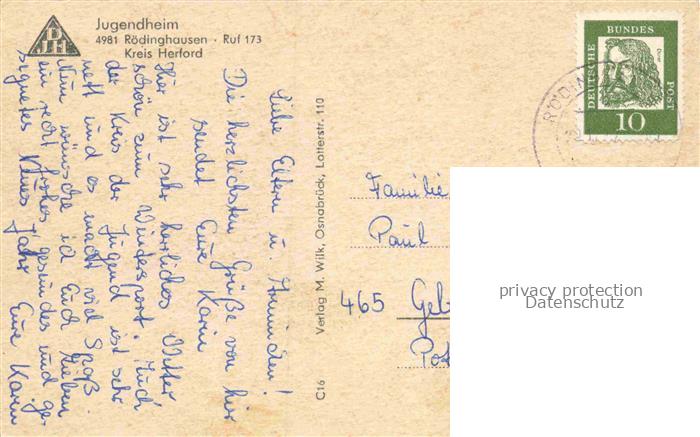 DJH
Jugendheim
4981 Rödinghausen · Ruf 173
Kreis Herford
Liebe Eltern u.
Die herzlichsten Grüße von hier
sendet Eure Karin
Hier ist sehr herrliches Wetter
schön zum Wintersport. Auch
der Kreis der Jugend ist sehr
nett und es macht viel Spaß.
Nun wünsche ich Euch Lieben
ein recht frohes, gesundes und ge-
segnetes Neues Jahr Eure Karin
C16 Verlag M. Wilk, Osnabrück, Lotterstr. 110
DEUTSCHE BUNDES POST
Dürer
10
RÖDIN
Familie
Paul
465 Gel
Po
privacy protection
Datenschutz